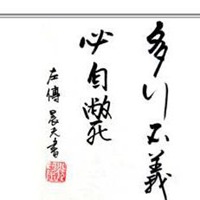 多行不義
必自斃
左傳 書